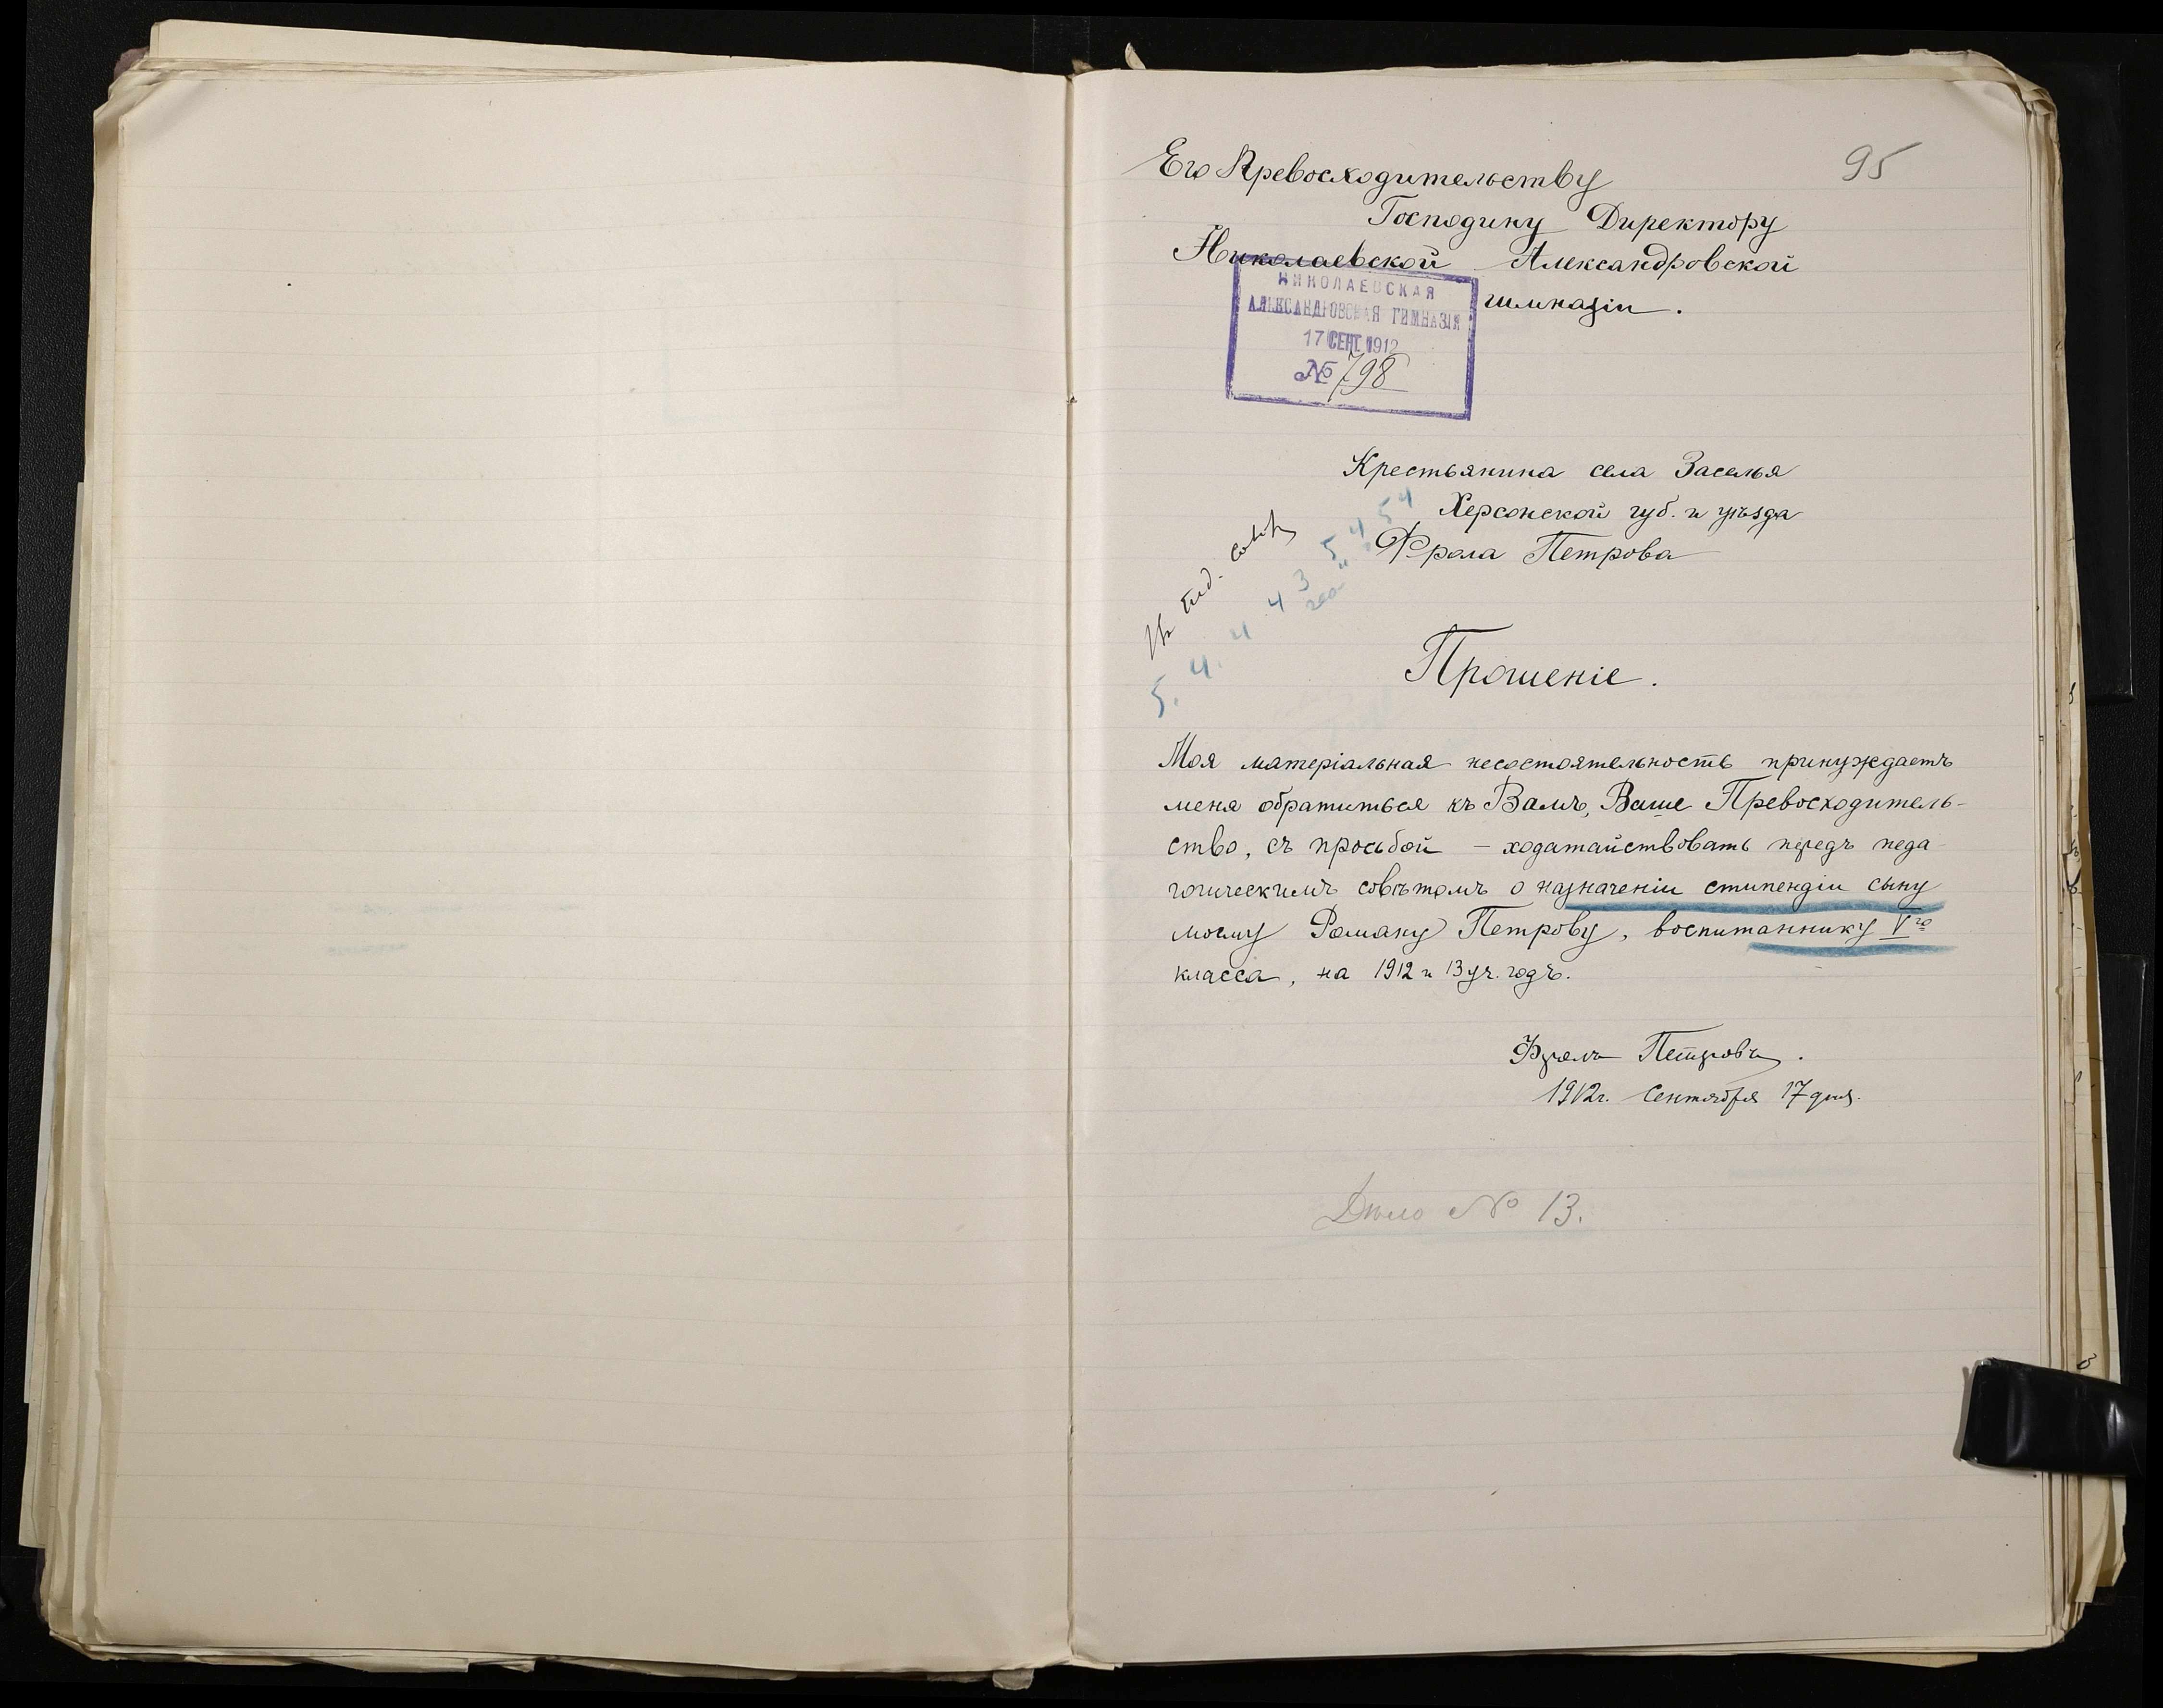 95
Его Превосходительству
Господину Директору
Николаевской Александровской
гимназіи.
НИКОЛАЕВСКАЯ
АЛЕКСАНДРОВСКАЯ ГИМНАЗІЯ
17 СЕНТ 1912
№ 798
Крестьянина села Заселья
Херсонской губ. и уѣзда
Фрола Петрова
Въ пед. совѣтъ
5. 4. 4 4 3 5 4 5 4
Прошеніе.
Моя матеріальная несостоятельность принуждаетъ
меня обратиться къ Вамъ, Ваше Превосходитель-
ство, съ просьбой – ходатайствовать передъ педа-
гогическимъ совѣтомъ о назначеніи стипендіи сыну
моему Роману Петрову, воспитаннику V го
класса, на 1912 и 13 уч. годъ.
Фролъ Петровъ.
1912 г. Сентября 17 дня.
Дѣло № 13.